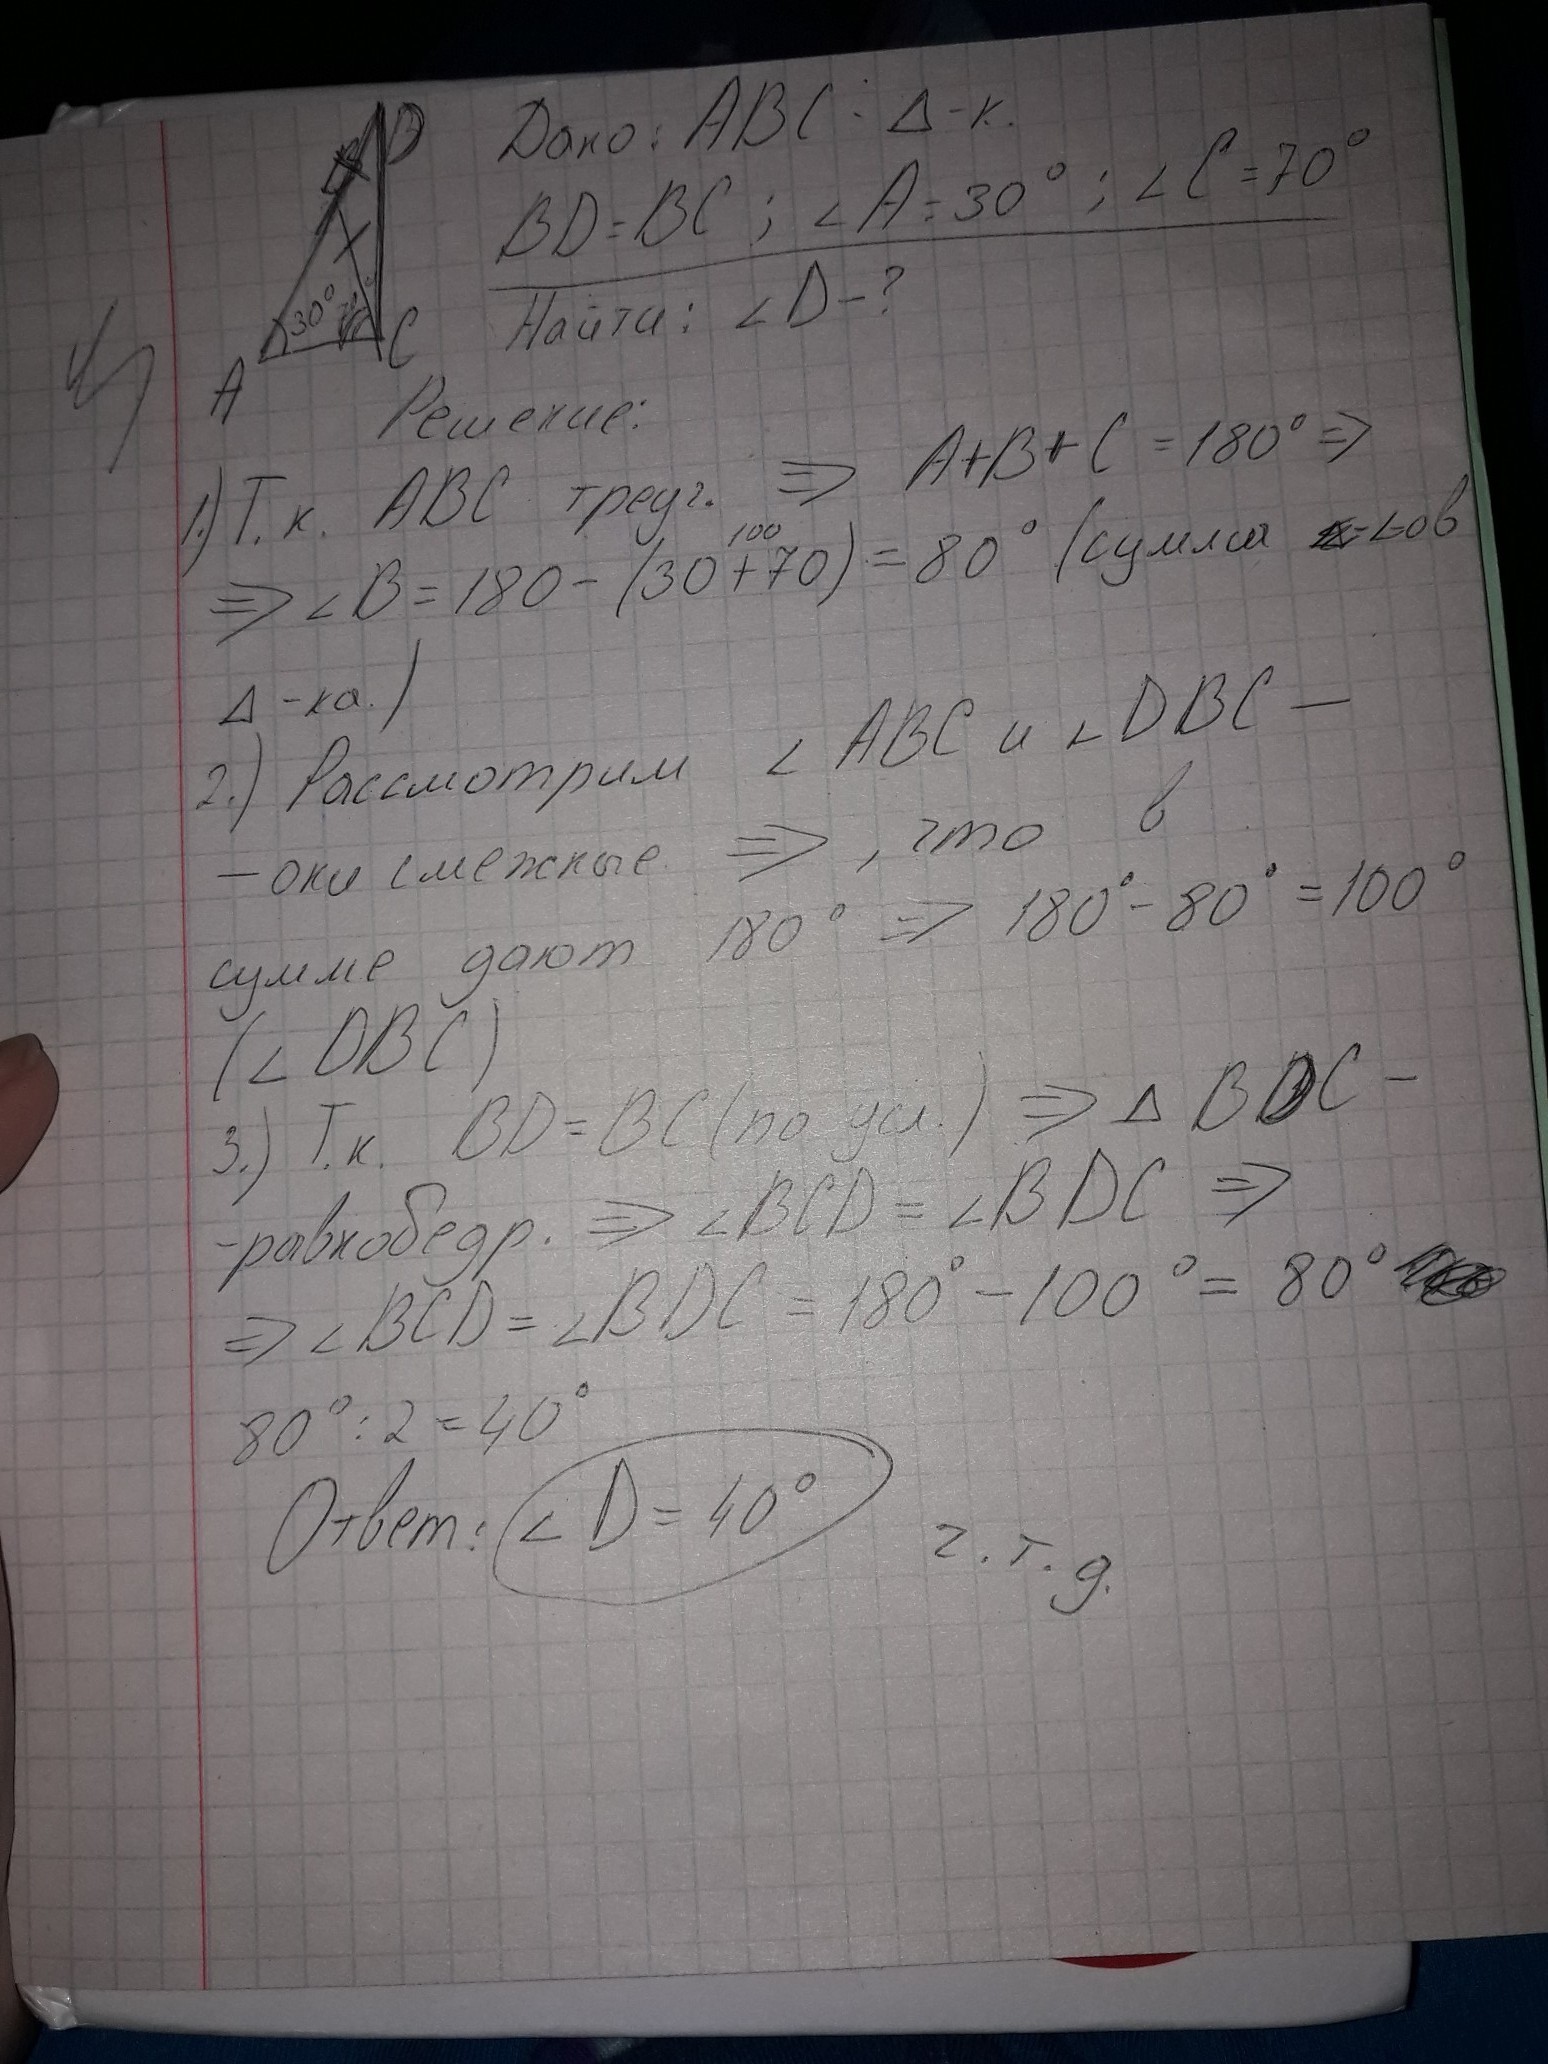 B D
30° 70°
A C
Дано: ABC - Δ-к.
BD=BC; ∠A=30°; ∠C=70°
Найти: ∠D-?
Решение:
1.) Т.к. ABC треуг. => A+B+C=180° =>
100
=> ∠B=180-(30+70)=80° (сумма ∠-ов
Δ-ка.)
2.) Рассмотрим ∠ABC и ∠DBC -
- они смежные => , что в
сумме дают 180° => 180°-80°=100°
(∠DBC)
3.) Т.к. BD=BC(по усл.) => Δ BDC -
-равнобедр. => ∠BCD=∠BDC =>
=> ∠BCD=∠BDC=180°-100°=80°
80°:2=40°
Ответ: ∠D=40° ч.т.д.